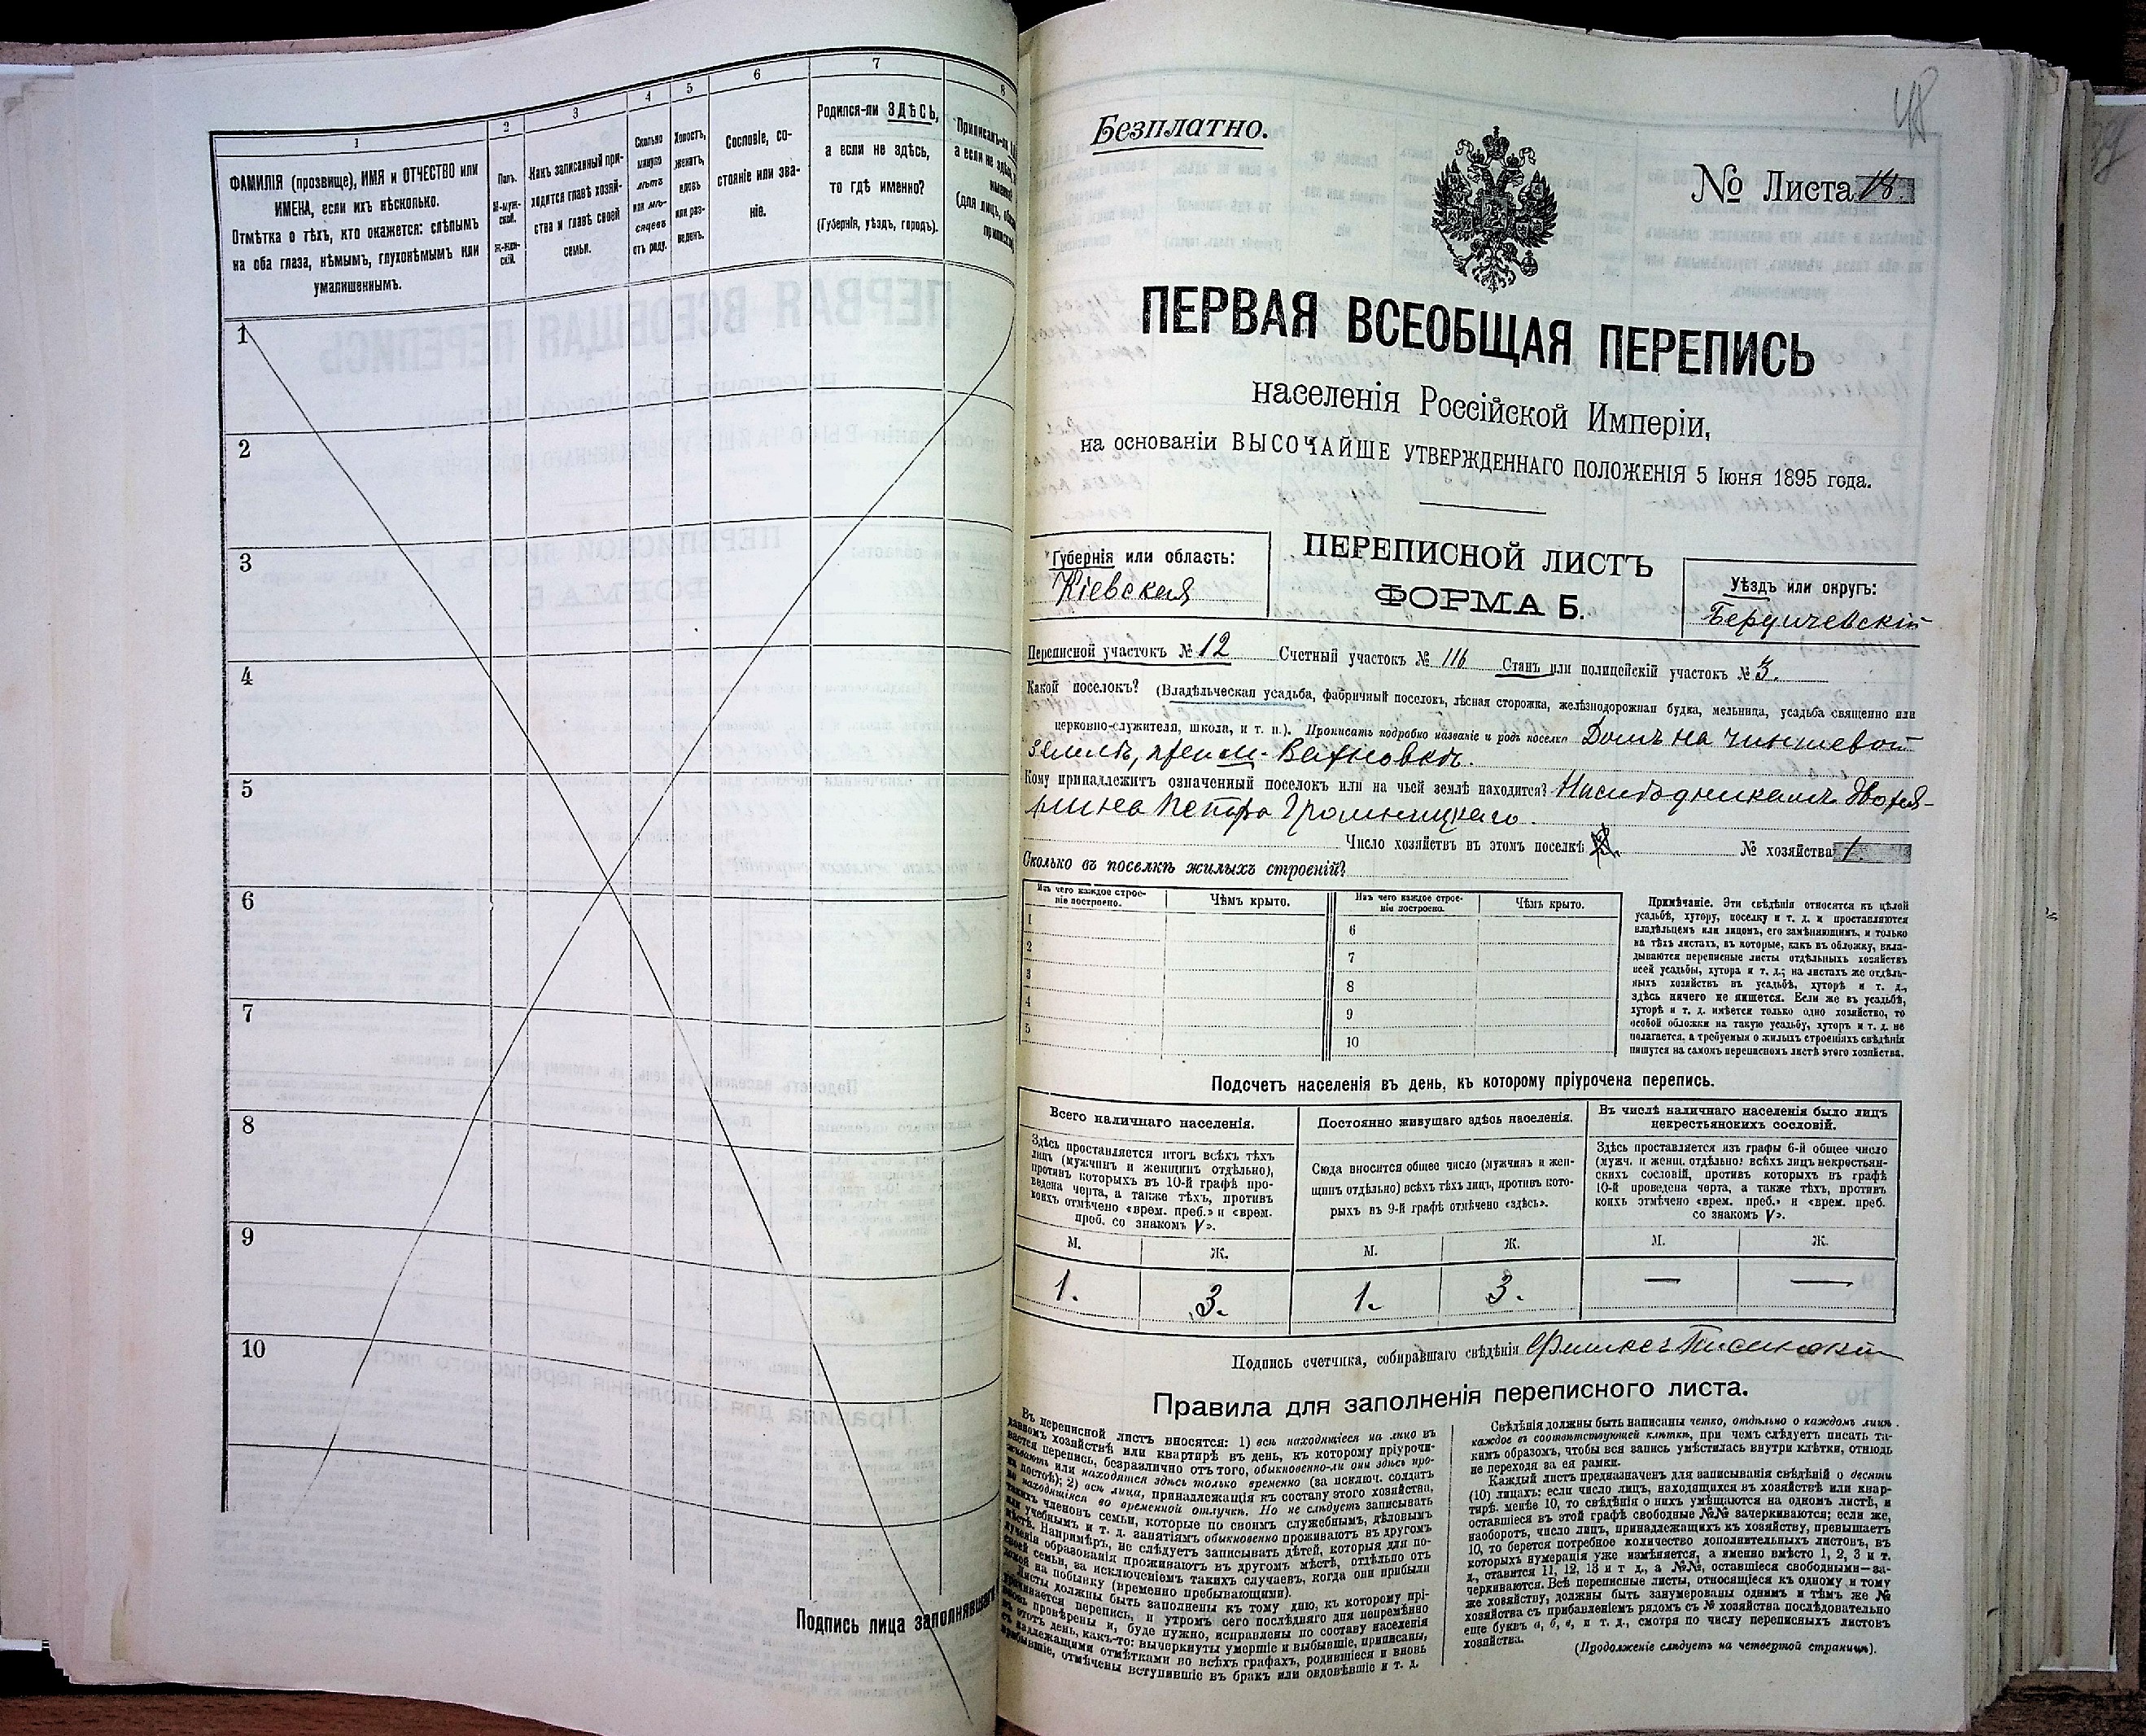 1
2
3
4
5
6
7
8
ФАМИЛІЯ (прозвище), ИМЯ и ОТЧЕСТВО или
ИМЕНА, если ихъ нѣсколько.
Отмѣтка о тѣхъ, кто окажется: слѣпымъ
на оба глаза, нѣмымъ, глухонѣмымъ или
умалишеннымъ.
Полъ.
М-муж-
ской.
Ж-жен-
скій.
Какъ записанный при-
ходится главѣ хозяй-
ства и главѣ своей
семьи.
Сколько
минуло
лѣтъ
или мѣ-
сяцевъ
отъ роду.
Холостъ,
женатъ,
вдовъ
или раз-
веденъ.
Сословіе, со-
стояніе или зва-
ніе.
Родился-ли ЗДѢСЬ,
а если не здѣсь,
то гдѣ именно?
(Губернія, уѣздъ, городъ).
Приписанъ-ли
а если не здѣсь,
(для лицъ,
1
2
3
4
5
6
7
8
9
10
Подпись лица заполнявшаго
48
Безплатно.
№ Листа 18.
ПЕРВАЯ ВСЕОБЩАЯ ПЕРЕПИСЬ
населенія Россійской Имперіи,
на основаніи ВЫСОЧАЙШЕ УТВЕРЖДЕННАГО ПОЛОЖЕНІЯ 5 Іюня 1895 года.
Губернія или область:
Кіевская
ПЕРЕПИСНОЙ ЛИСТЪ
ФОРМА Б.
Уѣздъ или округъ:
Бердичевскій
Переписной участокъ № 12 Счетный участокъ № 116 Станъ или полицейскій участокъ № 3.
Какой поселокъ? (Владѣльческая усадьба, фабричный поселокъ, лѣсная сторожка, желѣзнодорожная будка, мельница, усадьба священно или
церковно-служителя, школа, и т. п.). Прописать подробно названіе и родъ поселка Домъ на чиншевой
землѣ, при м. Вахновкѣ.
Кому принадлежитъ означенный поселокъ или на чьей землѣ находится? Наслѣдникамъ дворя-
нина Петра Громницкаго.
Число хозяйствъ въ этомъ поселкѣ № хозяйства 1.
Сколько въ поселкѣ жилыхъ строеній?
Изъ чего каждое строе-
ніе построено.
Чѣмъ крыто.
Изъ чего каждое строе-
ніе построено.
Чѣмъ крыто.
1
2
3
4
5
6
7
8
9
10
Примѣчаніе. Эти свѣдѣнія относятся къ цѣлой
усадьбѣ, хутору, поселку и т. д. и проставляются
владѣльцемъ или лицомъ, его замѣняющимъ, и только
на тѣхъ листахъ, въ которые, какъ въ обложку, вкла-
дываются переписные листы отдѣльныхъ хозяйствъ
всей усадьбы, хутора и т. д.; на листахъ же отдѣль-
ныхъ хозяйствъ въ усадьбѣ, хуторѣ и т. д.,
здѣсь ничего не пишется. Если же въ усадьбѣ,
хуторѣ и т. д. имѣется только одно хозяйство, то
особой обложки на такую усадьбу, хуторъ и т. д. не
полагается, а требуемыя о жилыхъ строеніяхъ свѣдѣнія
пишутся на самомъ переписномъ листѣ этого хозяйства.
Подсчетъ населенія въ день, къ которому пріурочена перепись.
Всего наличнаго населенія.
Здѣсь проставляется итогъ всѣхъ тѣхъ
лицъ (мужчинъ и женщинъ отдѣльно),
противъ которыхъ въ 10-й графѣ про-
ведена черта, а также тѣхъ, противъ
коихъ отмѣчено «врем. преб.» и «врем.
преб. со знакомъ V».
Постоянно живущаго здѣсь населенія.
Сюда вносится общее число (мужчинъ и жен-
щинъ отдѣльно) всѣхъ тѣхъ лицъ, противъ кото-
рыхъ въ 9-й графѣ отмѣчено «здѣсь».
Въ числѣ наличнаго населенія было лицъ
некрестьянскихъ сословій.
Здѣсь проставляется изъ графы 6-й общее число
(мужч. и женщ. отдѣльно) всѣхъ лицъ некрестьян-
скихъ сословій, противъ которыхъ въ графѣ
10-й проведена черта, а также тѣхъ, противъ
коихъ отмѣчено «врем. преб.» и «врем. преб.
со знакомъ V».
М. Ж. М. Ж. М. Ж.
1. 3. 1. 3. — —
Подпись счетчика, собиравшаго свѣдѣнія
Правила для заполненія переписного листа.
Въ переписной листъ вносятся: 1) всѣ находящіеся на лицо въ
данномъ хозяйствѣ или квартирѣ въ день, къ которому пріурочи-
вается перепись, безразлично отъ того, обыкновенно-ли они здѣсь про-
живаютъ или находятся здѣсь только временно (за исключ. солдатъ
на постоѣ); 2) всѣ лица, принадлежащія къ составу этого хозяйства,
но находящіяся во временной отлучкѣ. Но не слѣдуетъ записывать
такихъ членовъ семьи, которые по своимъ служебнымъ, дѣловымъ
или учебнымъ и т. д. занятіямъ обыкновенно проживаютъ въ другомъ
мѣстѣ. Напримѣръ, не слѣдуетъ записывать дѣтей, которыя для по-
лученія образованія проживаютъ въ другомъ мѣстѣ, отдѣльно отъ
своей семьи, за исключеніемъ такихъ случаевъ, когда они прибыли
домой на побывку (временно пребывающими).
Листы должны быть заполнены къ тому дню, къ которому прі-
урочивается перепись, и утромъ сего послѣдняго дня непремѣнно
вновь провѣрены и, буде нужно, исправлены по составу населенія
въ этотъ день, какъ-то: вычеркнуты умершіе и выбывшіе, приписаны,
съ надлежащими отмѣтками во всѣхъ графахъ, родившіеся и вновь
прибывшіе, отмѣчены вступившіе въ бракъ или овдовѣвшіе и т. д.
Свѣдѣнія должны быть написаны четко, отдѣльно о каждомъ лицѣ,
каждое въ соотвѣтствующей клѣткѣ, при чемъ слѣдуетъ писать та-
кимъ образомъ, чтобы вся запись умѣстилась внутри клѣтки, отнюдь
не переходя за ея рамки.
Каждый листъ предназначенъ для записыванія свѣдѣній о десяти
(10) лицахъ: если число лицъ, находящихся въ хозяйствѣ или квар-
тирѣ, менѣе 10, то свѣдѣнія о нихъ умѣщаются на одномъ листѣ, и
оставшіеся въ этой графѣ свободные №№ зачеркиваются; если же,
наоборотъ, число лицъ, принадлежащихъ къ хозяйству, превышаетъ
10, то берется потребное количество дополнительныхъ листовъ, въ
которыхъ нумерація уже измѣняется, а именно вмѣсто 1, 2, 3 и т.
д., ставится 11, 12, 13 и т д., а №№, оставшіеся свободными—за-
черкиваются. Всѣ переписные листы, относящіеся къ одному и тому
же хозяйству, должны быть занумерованы однимъ и тѣмъ же №
хозяйства съ прибавленіемъ рядомъ съ № хозяйства послѣдовательно
еще буквъ а, б, в, и т. д., смотря по числу переписныхъ листовъ
хозяйства.
(Продолженіе слѣдуетъ на четвертой страницѣ).